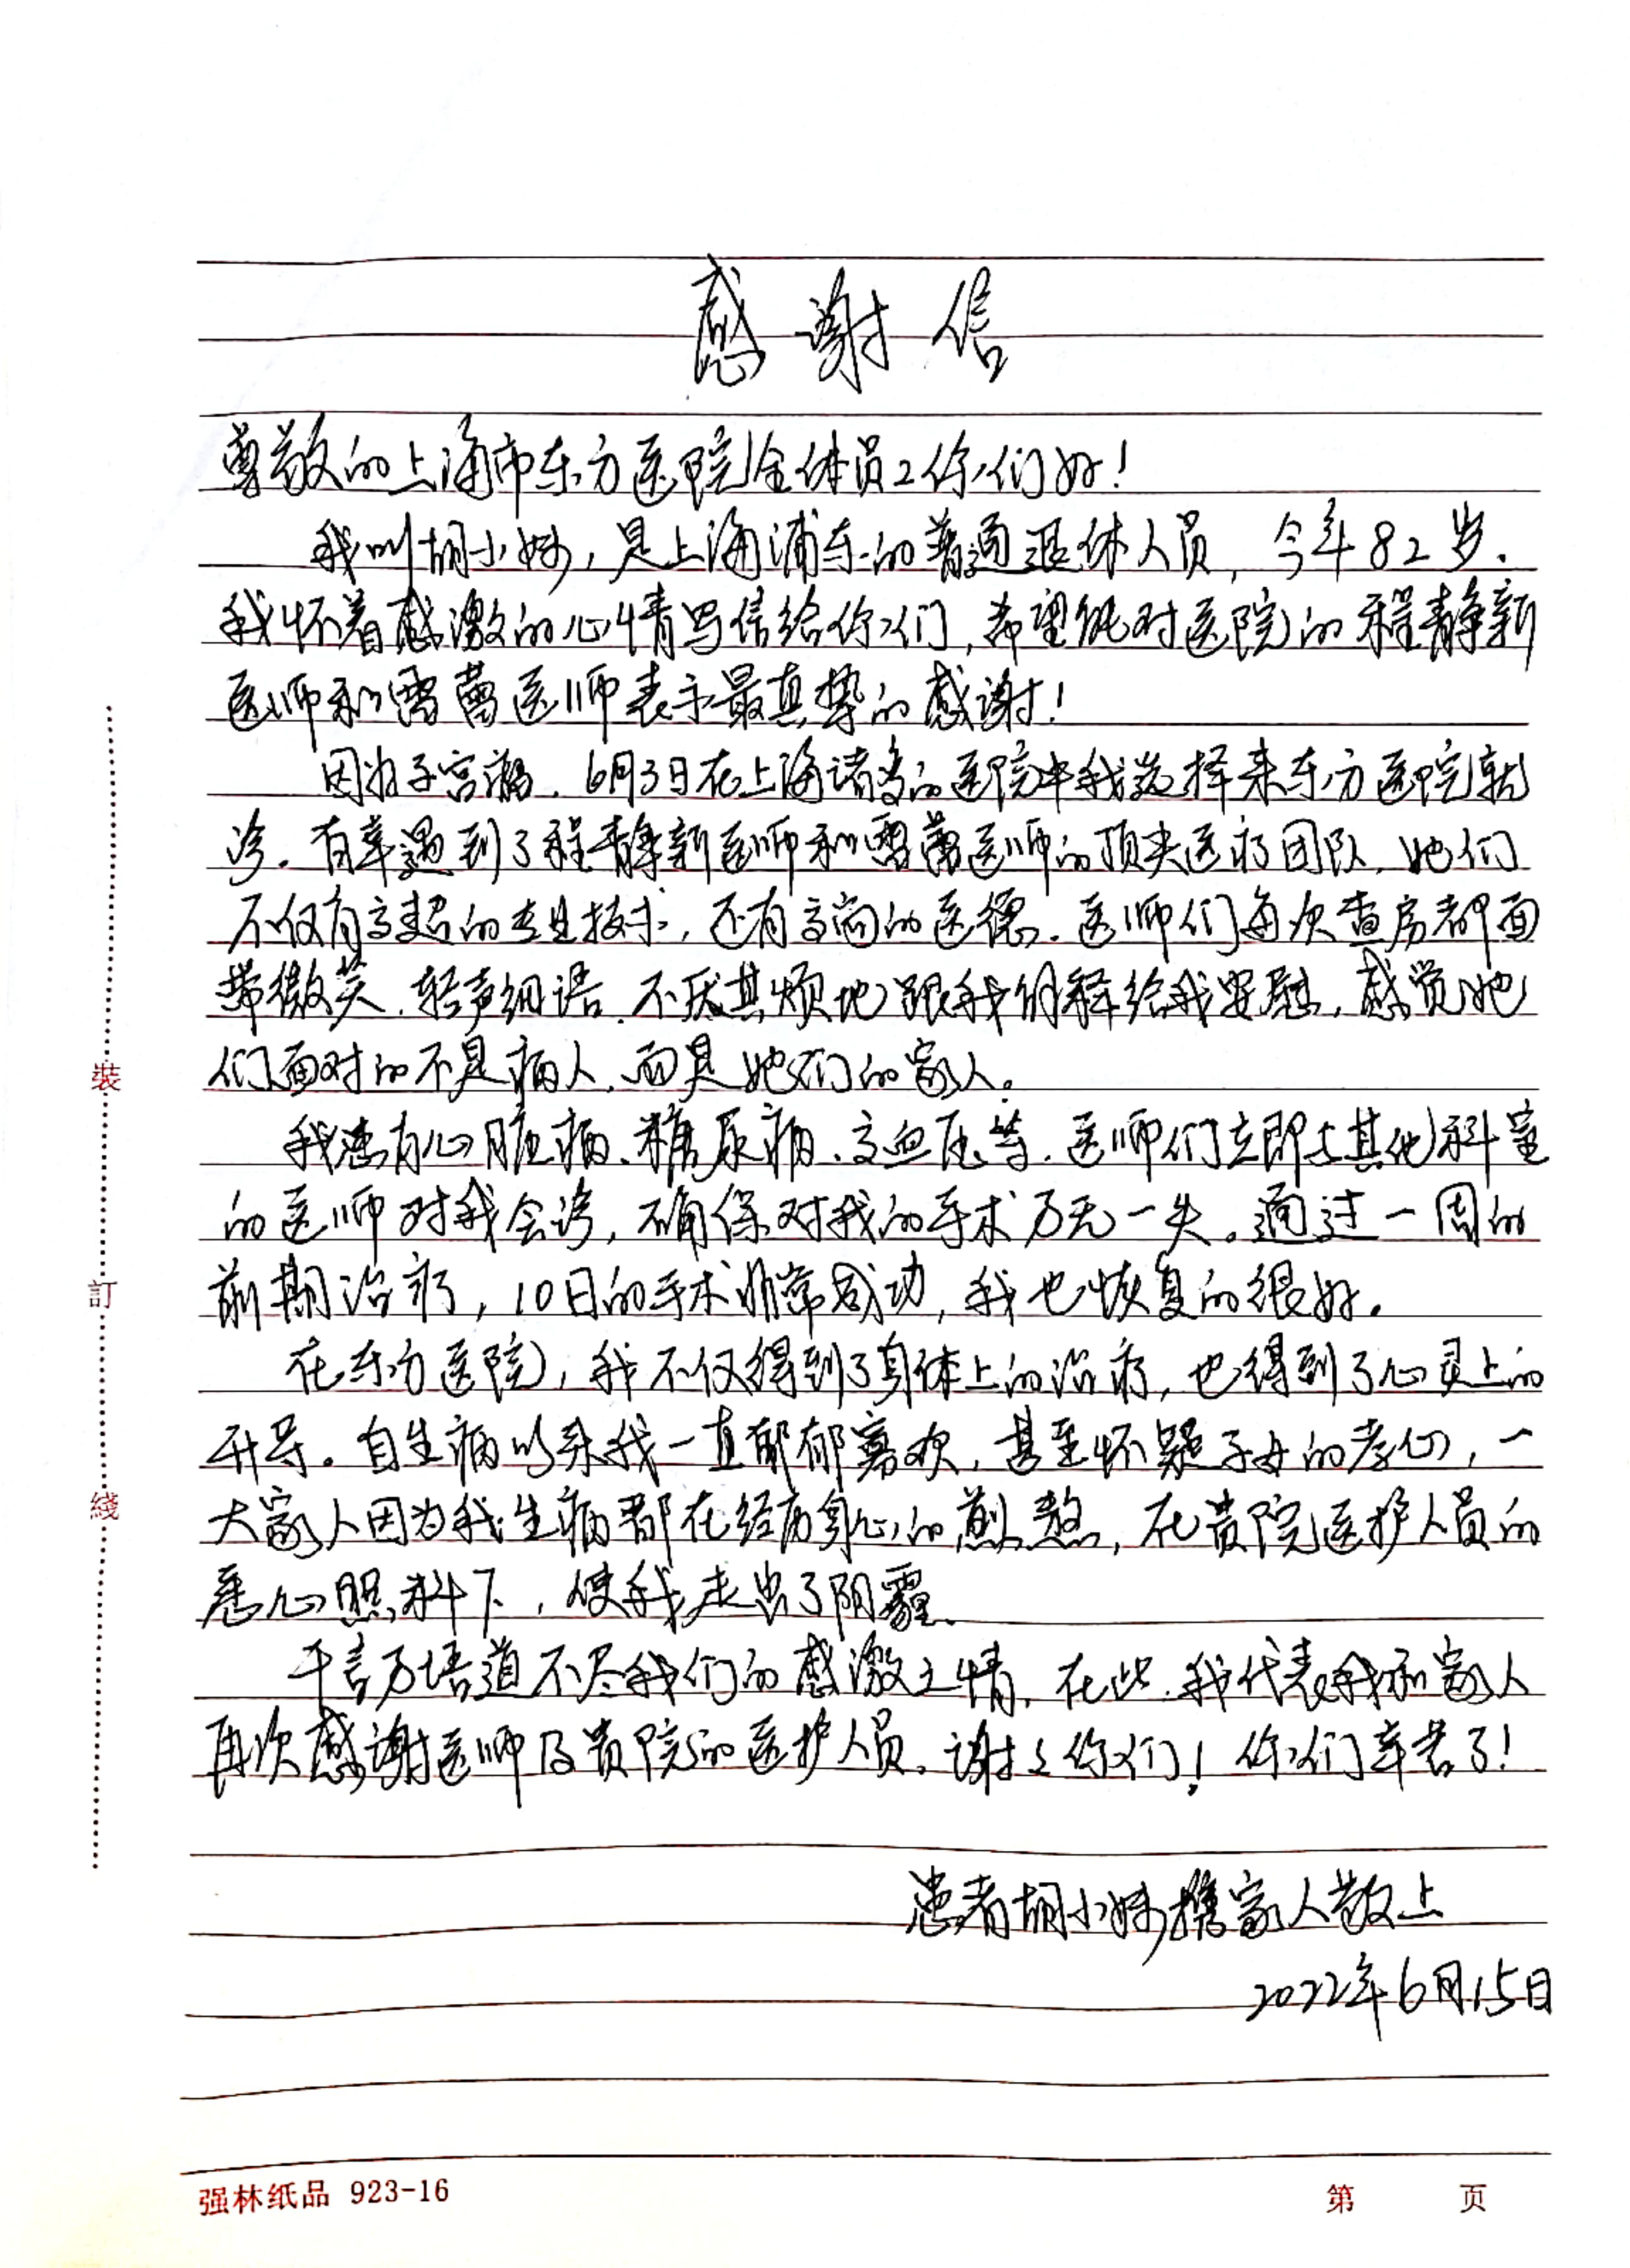 感谢信
尊敬的上海市东方医院全体员工你们好！
我叫胡小妹，是上海浦东的普通退休人员，今年82岁．
我怀着感激的心情写信给你们，希望能对医院的程静新
医师和雷蕾医师表示最真挚的感谢！
因为子宫癌．6月3日在上海诸多的医院中我选择来东方医院就
诊．有幸遇到了程静新医师和雷蕾医师的顶尖医疗团队．她们
不仅有高超的专业技术，还有高尚的医德．医师们每次查房都面
带微笑．轻声细语．不厌其烦地跟我们解释给我安慰．感觉她
们面对的不是病人．而是她们的家人。
我患有心脏病、糖尿病、高血压等．医师们立即与其他科室
的医师对我会诊，确保对我的手术万无一失。通过一周的
前期治疗，10日的手术非常成功，我也恢复的很好。
在东方医院，我不仅得到了身体上的治疗，也得到了心灵上的
开导。自生病以来我一直郁郁寡欢，甚至怀疑子女的孝心，一
大家人因为我生病都在经历身心的煎熬，在贵院医护人员的
悉心照料下，使我走出了阴霾．
千言万语道不尽我们的感激之情．在此．我代表我和家人
再次感谢医师及贵院的医护人员。谢谢你们！你们辛苦了！
患者胡小妹携家人敬上
2022年6月15日
裝
訂
綫
强林纸品 923-16
第 页